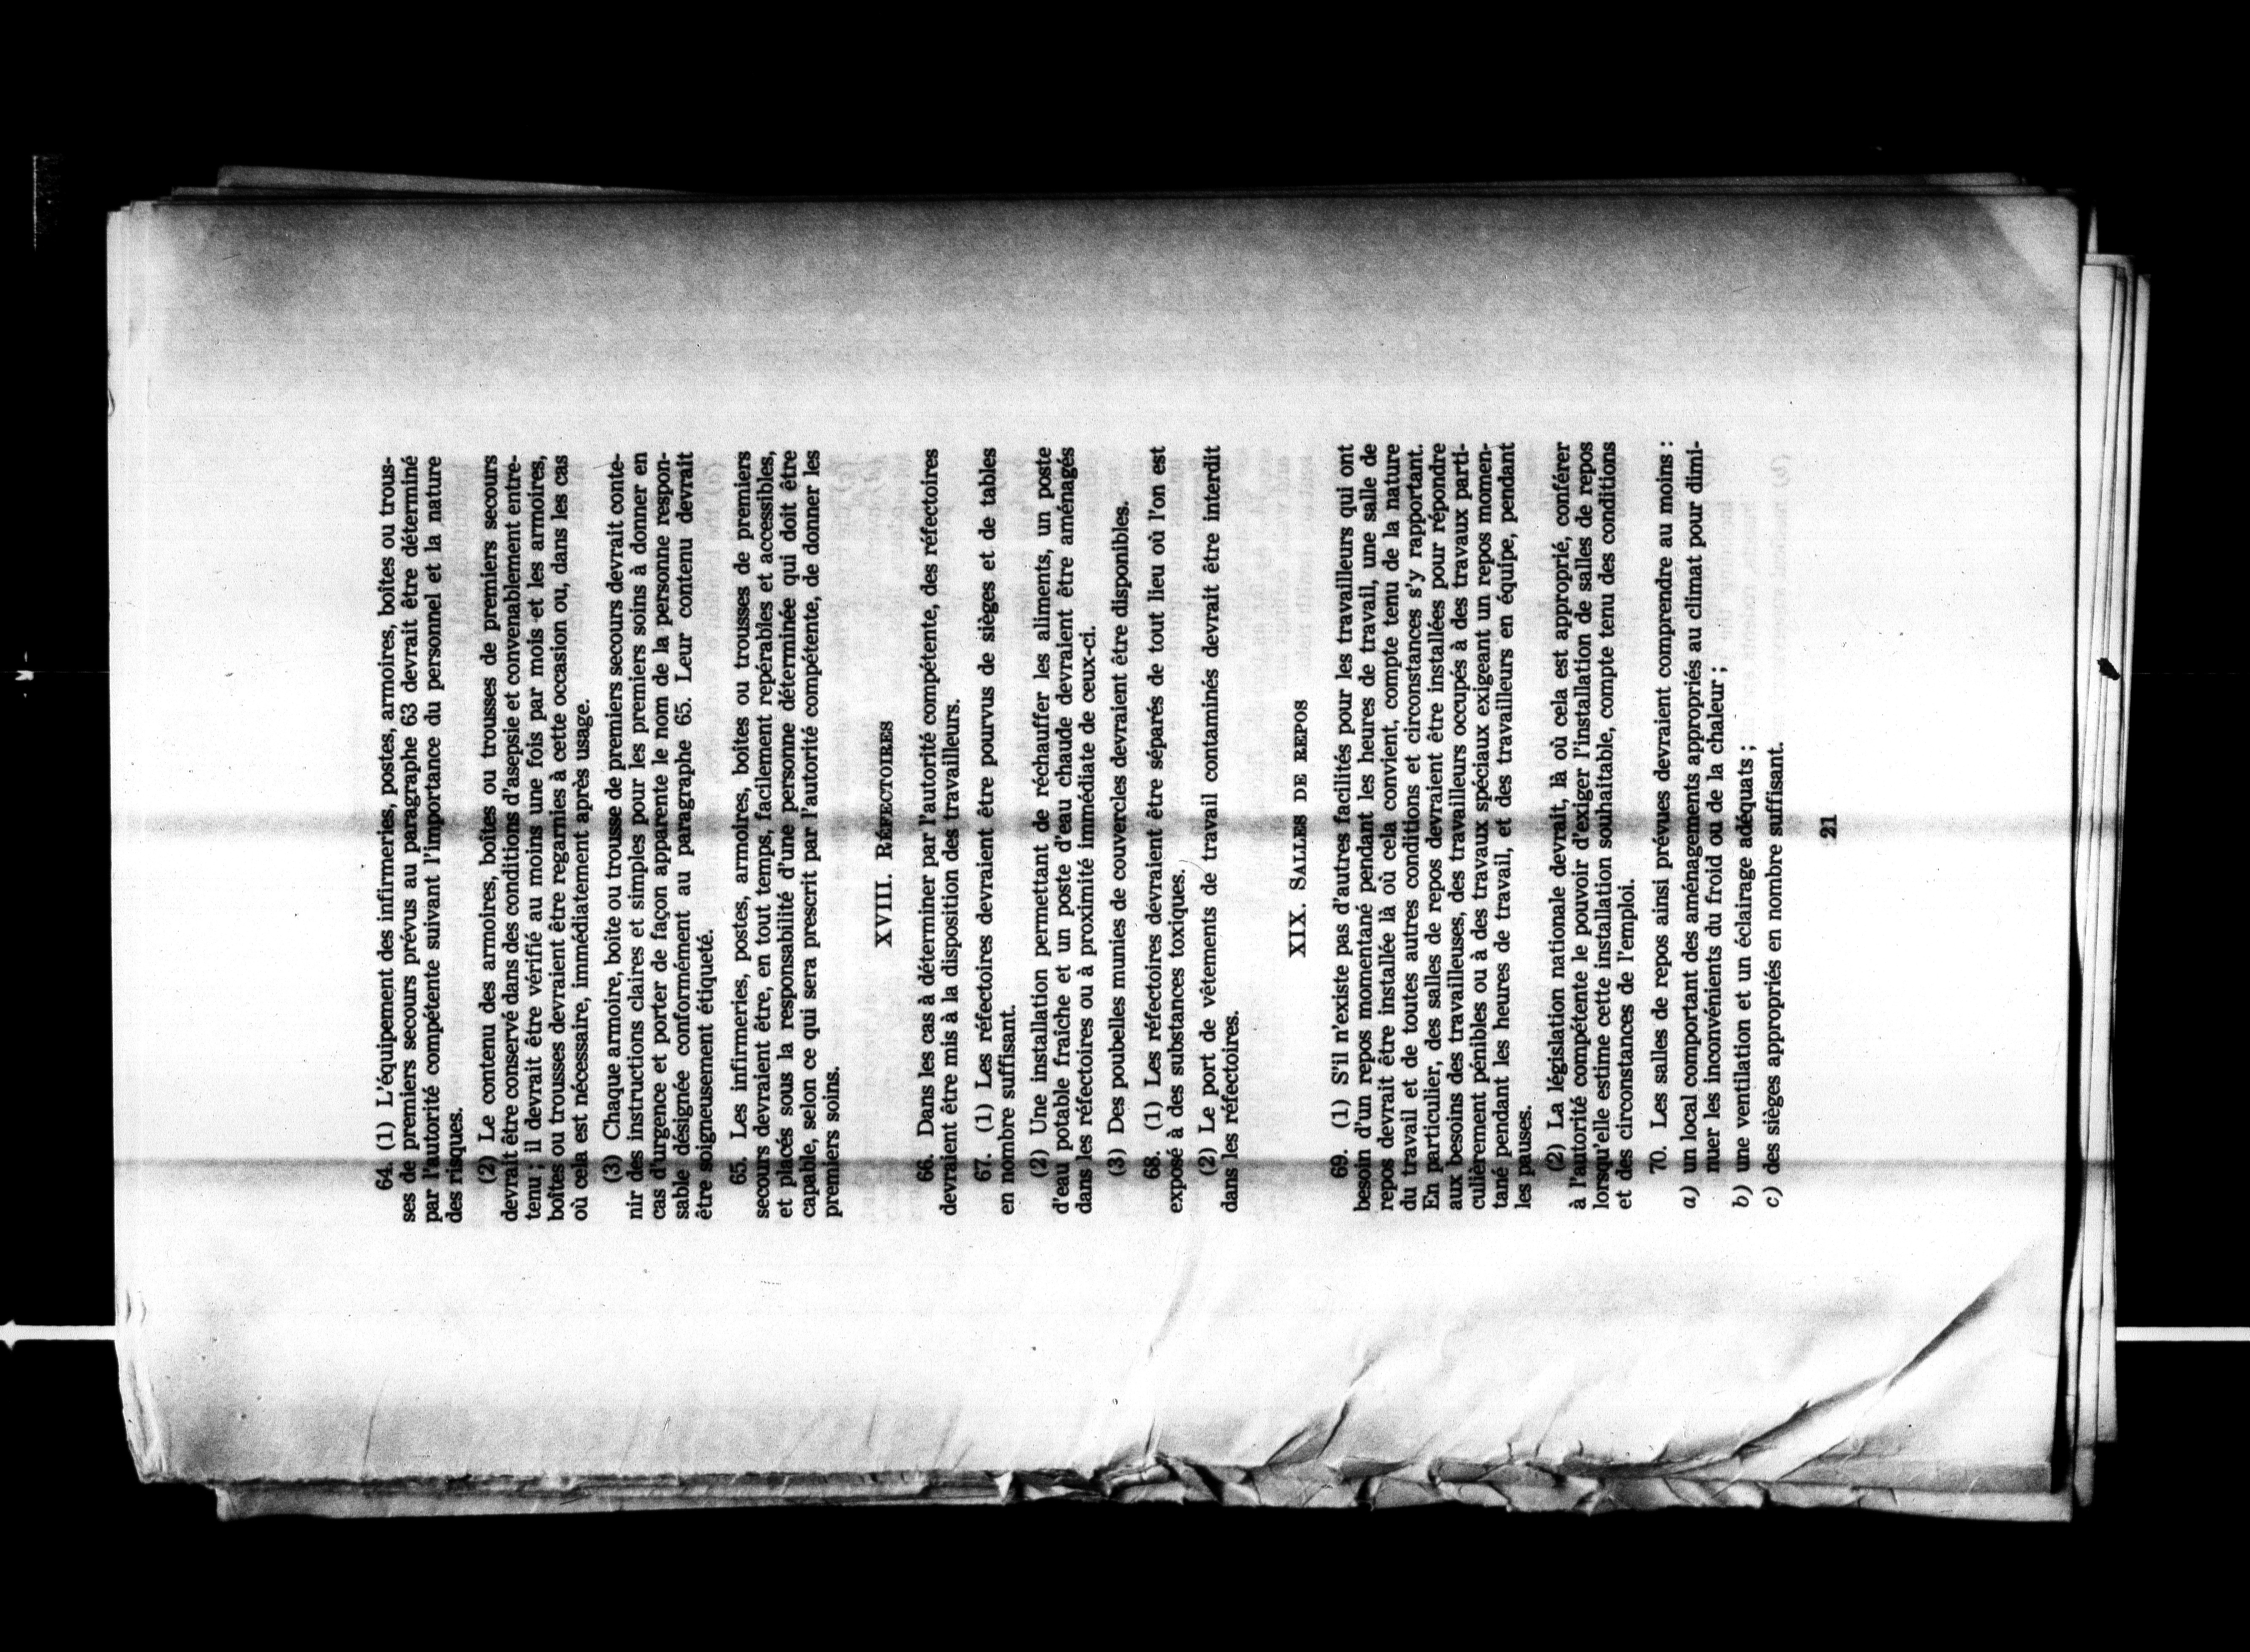 64. (1) L'équipement des infirmeries, postes, armoires, boîtes ou trous-
ses de premiers secours prévus au paragraphe 63 devrait être déterminé
par l'autorité compétente suivant l'importance du personnel et la nature
des risques.
(2) Le contenu des armoires, boîtes ou trousses de premiers secours
devrait être conservé dans des conditions d'asepsie et convenablement entre-
tenu ; il devrait être vérifié au moins une fois par mois et les armoires,
boîtes ou trousses devraient être regarnies à cette occasion ou, dans les cas
où cela est nécessaire, immédiatement après usage.
(3) Chaque armoire, boîte ou trousse de premiers secours devrait conte-
nir des instructions claires et simples pour les premiers soins à donner en
cas d'urgence et porter de façon apparente le nom de la personne respon-
sable désignée conformément au paragraphe 65. Leur contenu devrait
être soigneusement étiqueté.
65. Les infirmeries, postes, armoires, boîtes ou trousses de premiers
secours devraient être, en tout temps, facilement repérables et accessibles,
et placés sous la responsabilité d'une personne déterminée qui doit être
capable, selon ce qui sera prescrit par l'autorité compétente, de donner les
premiers soins.
XVIII. RÉFECTOIRES
66. Dans les cas à déterminer par l'autorité compétente, des réfectoires
devraient être mis à la disposition des travailleurs.
67. (1) Les réfectoires devraient être pourvus de sièges et de tables
en nombre suffisant.
(2) Une installation permettant de réchauffer les aliments, un poste
d'eau potable fraîche et un poste d'eau chaude devraient être aménagés
dans les réfectoires ou à proximité immédiate de ceux-ci.
(3) Des poubelles munies de couvercles devraient être disponibles.
68. (1) Les réfectoires devraient être séparés de tout lieu où l'on est
exposé à des substances toxiques.
(2) Le port de vêtements de travail contaminés devrait être interdit
dans les réfectoires.
XIX. SALLES DE REPOS
69. (1) S'il n'existe pas d'autres facilités pour les travailleurs qui ont
besoin d'un repos momentané pendant les heures de travail, une salle de
repos devrait être installée là où cela convient, compte tenu de la nature
du travail et de toutes autres conditions et circonstances s'y rapportant.
En particulier, des salles de repos devraient être installées pour répondre
aux besoins des travailleuses, des travailleurs occupés à des travaux parti-
culièrement pénibles ou à des travaux spéciaux exigeant un repos momen-
tané pendant les heures de travail, et des travailleurs en équipe, pendant
les pauses.
(2) La législation nationale devrait, là où cela est approprié, conférer
à l'autorité compétente le pouvoir d'exiger l'installation de salles de repos
lorsqu'elle estime cette installation souhaitable, compte tenu des conditions
et des circonstances de l'emploi.
70. Les salles de repos ainsi prévues devraient comprendre au moins :
a) un local comportant des aménagements appropriés au climat pour dimi-
nuer les inconvénients du froid ou de la chaleur ;
b) une ventilation et un éclairage adéquats ;
c) des sièges appropriés en nombre suffisant.
21